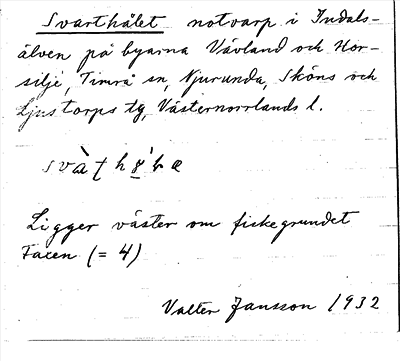 Svarthålet notvarp i Indals-
älven på byarna Vävland och Hor-
silje, Timrå sn, Njurunda, Sköns och
Ljustorps tg, Västernorrlands l.
Ligger väster om fiskegrundet
Facen (= 4)
Valter Jansson 1932